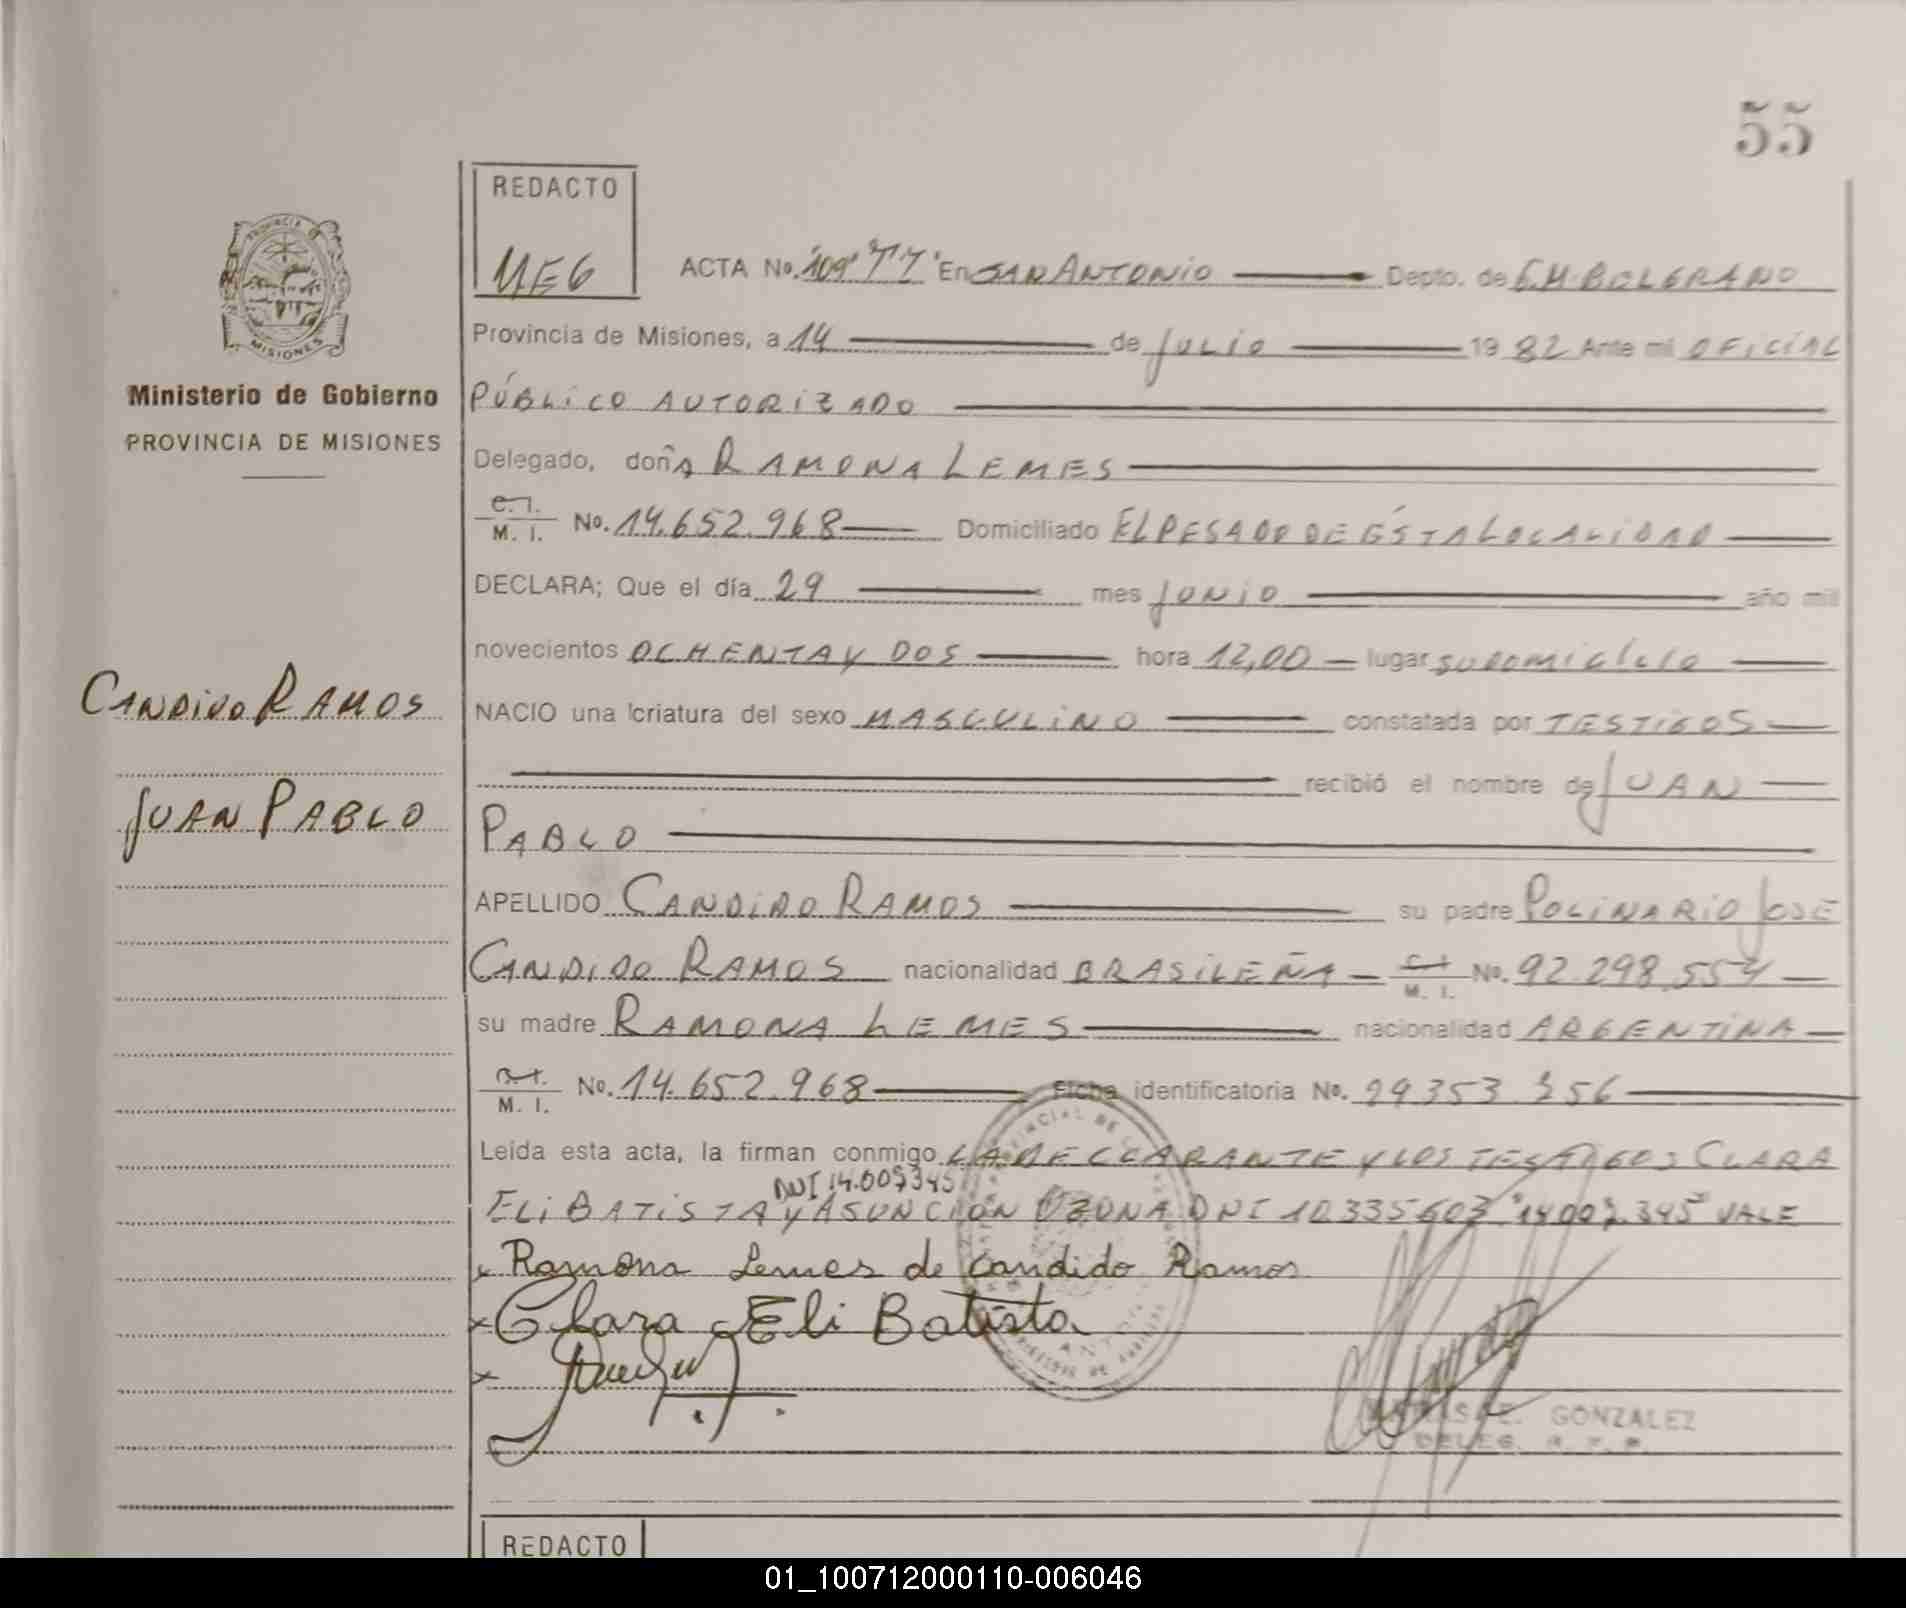 55
REDACTO
MEG
ACTA No. 109 "TT" En SAN ANTONIO Depto. de G.M. BELGRANO
Provincia de Misiones, a 14 de JULIO 1982 Ante mi OFICIAL
PÚBLICO AUTORIZADO
Delegado, doñA RAMONA LEMES
C. I. M. I. No. 14.652.968 Domiciliado EL PESADO DE ÉSTA LOCALIDAD
DECLARA; Que el día 29 mes JUNIO año mil
novecientos OCHENTA Y DOS hora 12,00 lugar SU DOMICILIO
NACIO una criatura del sexo MASCULINO constatada por TESTIGOS
recibió el nombre de JUAN
PABLO
APELLIDO CANDIDO RAMOS su padre POLINARIO JOSE
CANDIDO RAMOS nacionalidad BRASILEÑA C. I. M. I. No. 92.298.554
su madre RAMONA LEMES nacionalidad ARGENTINA
C. I. M. I. No. 14.652.968 Ficha identificatoria No. 29353 356
Leída esta acta, la firman conmigo LA DECLARANTE Y LOS TESTIGOS CLARA
DNI 14.007345
ELI BATISTA Y ASUNCIÓN OZUNA DNI 10.335.603 "14.007.345" VALE
x Ramona Lemes de Candido Ramos
x Clara Eli Batista
x
E. GONZALEZ
DELEG. R. P. P.
PROVINCIA
MISIONES
Ministerio de Gobierno
PROVINCIA DE MISIONES
CANDIDO RAMOS
JUAN PABLO
REDACTO
01_100712000110-006046